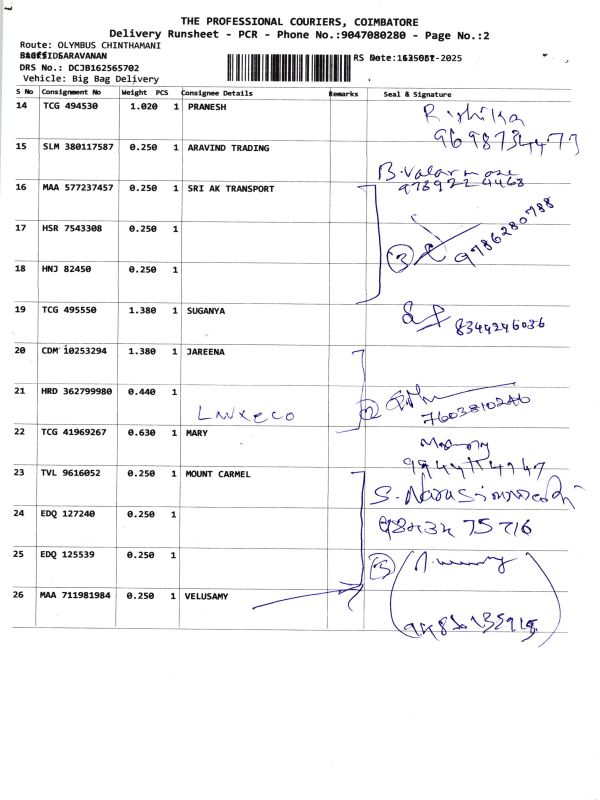 THE PROFESSIONAL COURIERS, COIMBATORE
Delivery Runsheet - PCR - Phone No.:9047080280 - Page No.:2
Route: OLYMBUS CHINTHAMANI
SARAVANAN
DRS No.: DCJB162565702
Vehicle: Big Bag Delivery
S No Consignment No Weight PCS Consignee Details Remarks Seal & Signature
14 TCG 494530 1.020 1 PRANESH
Rishika
15 SLM 380117587 0.250 1 ARAVIND TRADING
16 MAA 577237457 0.250 1 SRI AK TRANSPORT
17 HSR 7543308 0.250 1
3 9786280788
18 HNJ 82450 0.250 1
19 TCG 495550 1.380 1 SUGANYA
8344246036
20 CDM 10253294 1.380 1 JAREENA
21 HRD 362799980 0.440 1
2
7603810240
22 TCG 41969267 0.630 1 MARY
23 TVL 9616052 0.250 1 MOUNT CARMEL
24 EDQ 127240 0.250 1
25 EDQ 125539 0.250 1
26 MAA 711981984 0.250 1 VELUSAMY